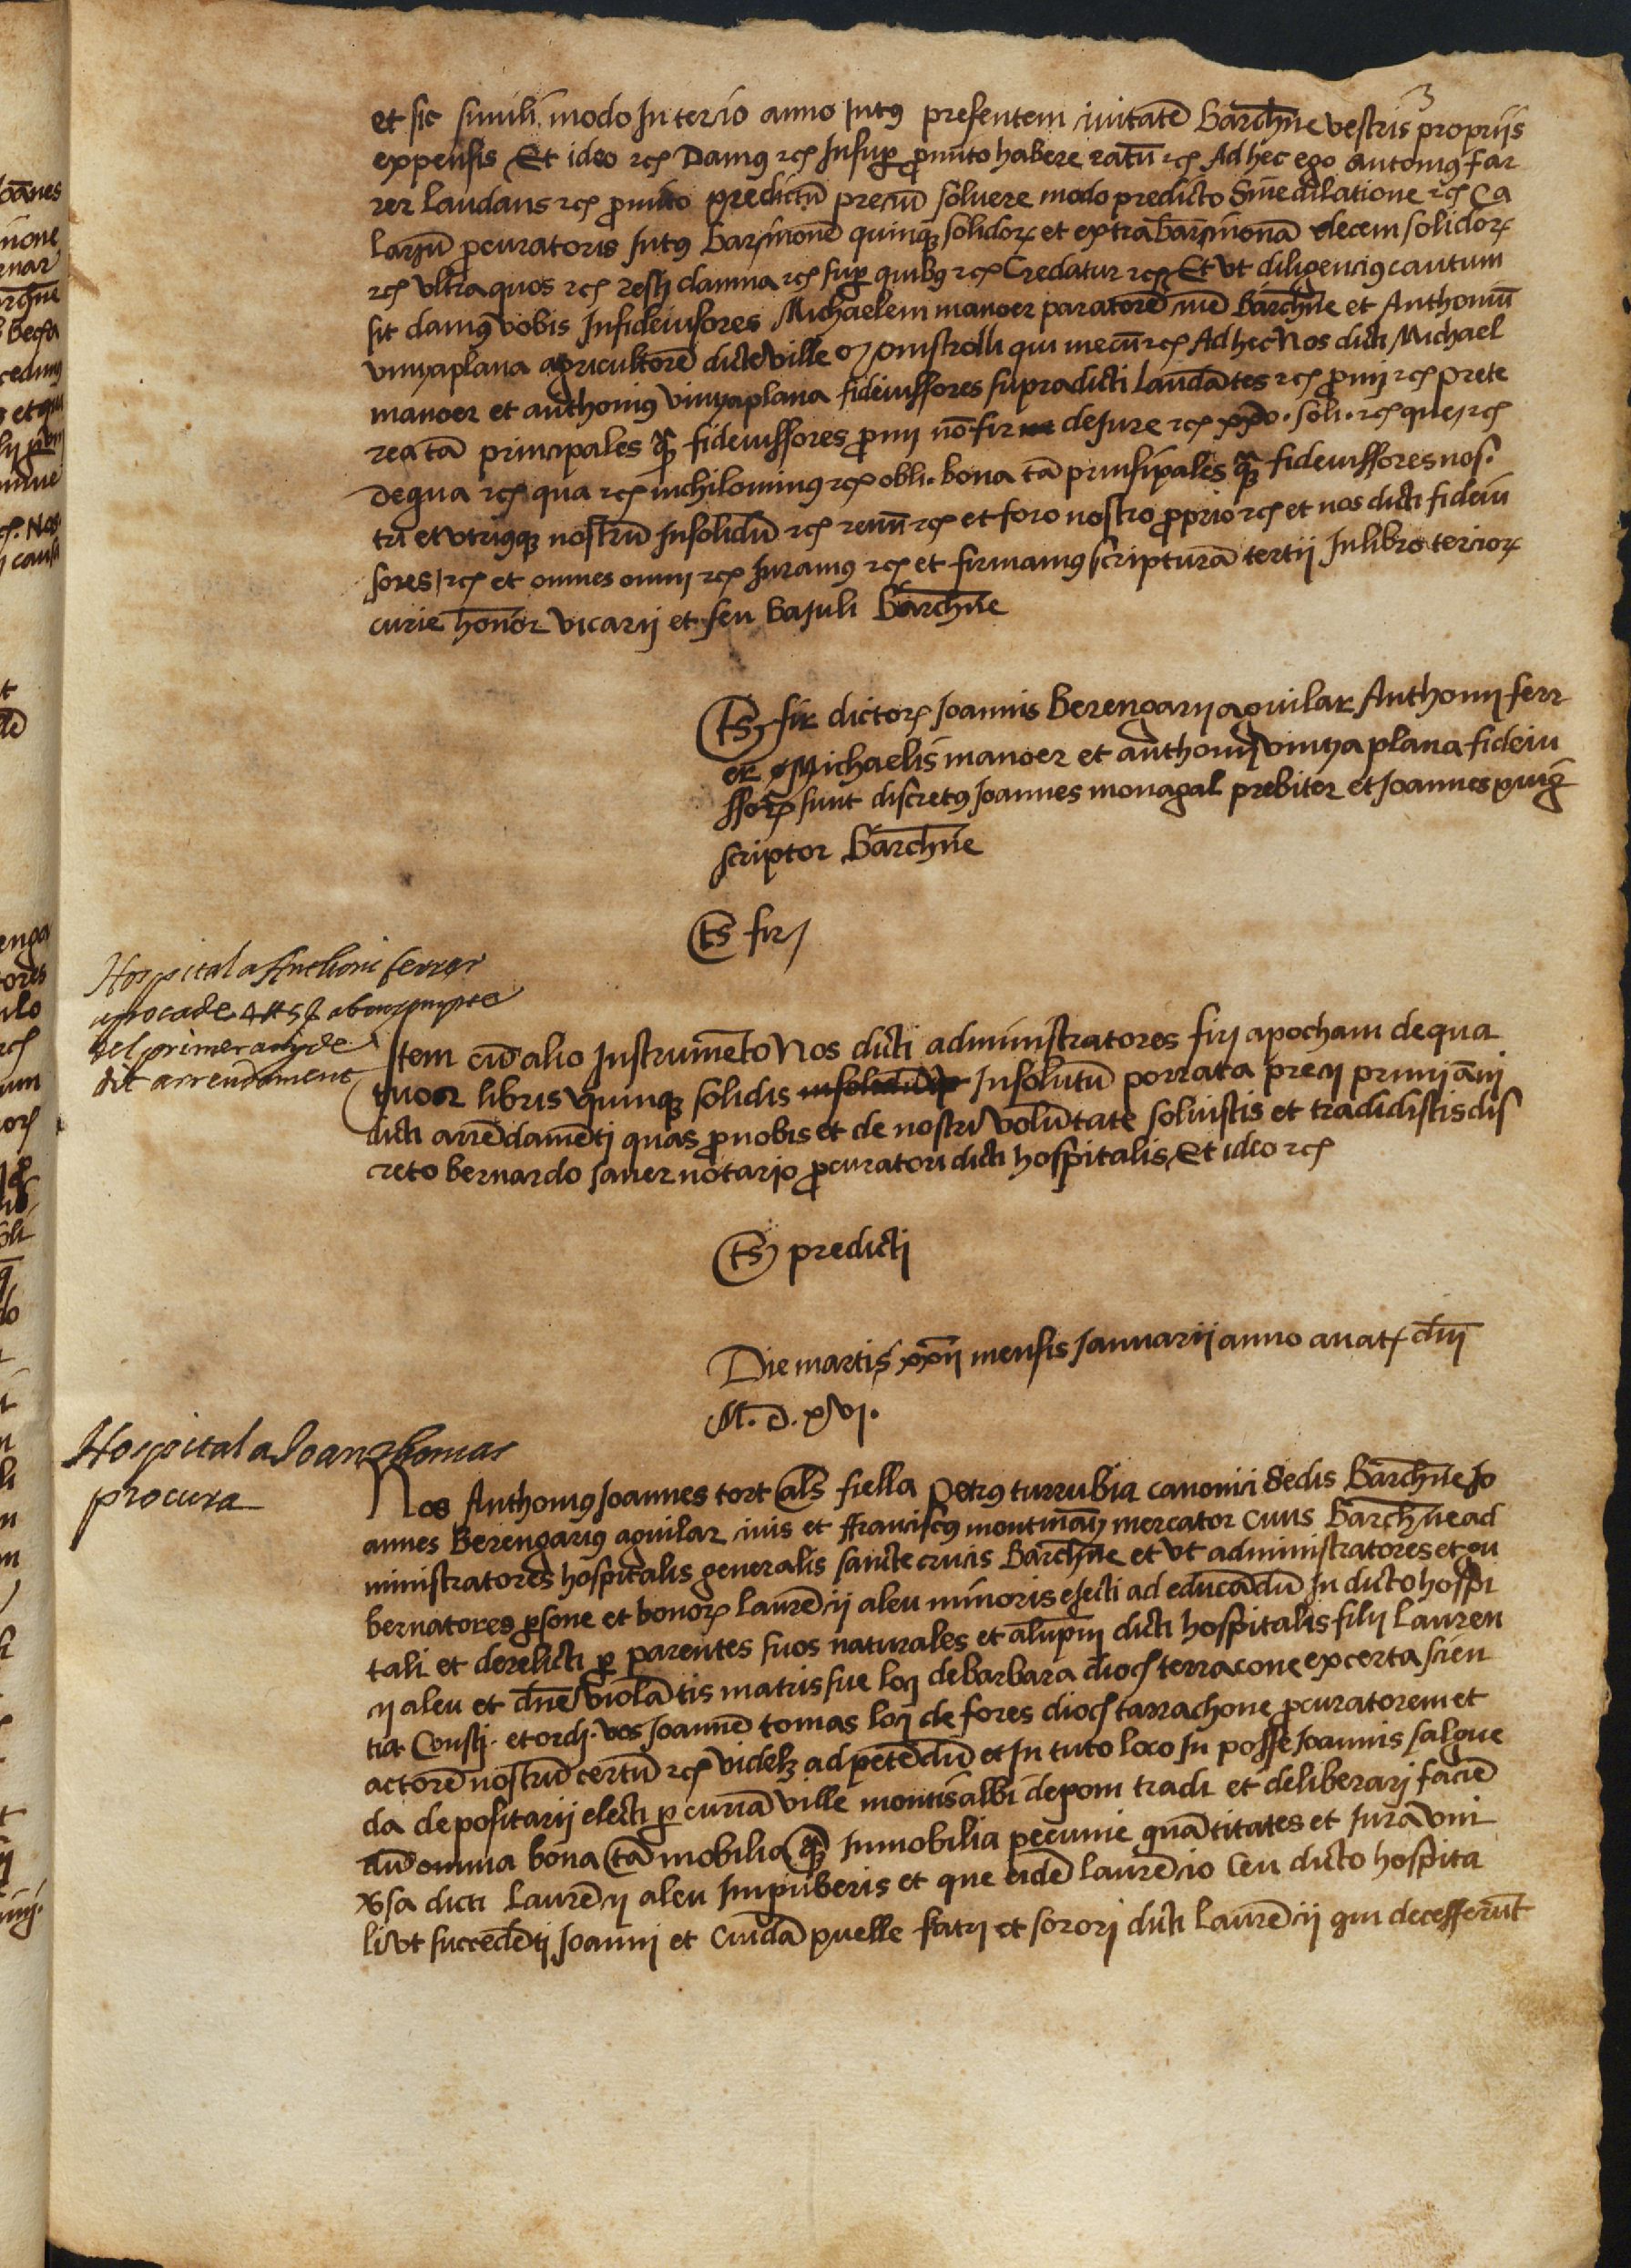 3
et sic simili modo Interio anno Intus presentem civitatē barchn̄e vestris proprijs
expensis Et ideo rcs Damus rcs Insuper promito habere ratū rcs Ad hec ego antonius far
rer laudans rcs promito predictū preciū soluere modo predicto Sine dilatione rcs Ca
lariū procuratoris Intus barsinonē quinqꝫ solidorꝫ et extra barsinonā decem solidorꝫ
rcs ultra quos rcs restj damna rcs sup quibus rcs Credatur rcs Et vt diligencius cautum
sit damus vobis Infideiusores Michaelem manoer paratorē civē barchn̄e et Anthoniū
vinyaplana agricultorē dicte ville qui mecū rcs Ad hec Nos dicti Michael
manoer et anthonius vinyaplana fideiussores supradicti laudātes rcs promj rcs prete
rea tā principales qꝫ fideiussores promj nō fir de Jure rcs soli. rcs quej rcs
Dequa rcs qua rcs inchilominus rcs obli. bona tā prinsipales qꝫ fideiussores nos.
tri et vtriusqꝫ nostrū Insolidū rcs renū rcs et foro nostro proprio rcs et nos dicti fideiu
sores rcs et omnes omnj rcs Juramus rcs et firmamus scripturā tertij In libro terciorꝫ
curie honor vicarij et seu baiuli barchn̄e
ts fir dictorꝫ Joannis Berengarij aguilar Anthonij ferr
er Michaelis manoer et anthonij vinyaplana fideiu
ssorꝫ sunt discretus Joannes monagal prebiter et Joannes puig
scriptor barchn̄e
ts firj
Hospital a Anthoni ferrer
apocade
del primer any de
dit arrendament
Item cū alio Instrumēto Nos dicti administratores firj apocham de qua
tuor libris quinqꝫ solidis Insolutū porrata precij primj ānj
dicti arrēdamētj quas pro nobis et de nostri volūtate solvistis et tradidistis dis
creto bernardo Janer notario procuratori dicti hospitalis Et ideo rcs
ts predicti
Die martis xxij mensis Januarij anno anatꝭ dn̄j
M. D. xvj.
Hospital a Joan thomas
procura
Nos Anthonius Joannes tort als fiella Petrus turrubia canonici Sedis barchn̄e Jo
annes Berengarius aguilar civis et ffranciscus montmāy mercator civis barchn̄e ad
ministratores hospitalis generalis sancte crucis Barchn̄e et vt administratores et gu
bernatores psone et bonorꝫ laurēcij aleu minoris ejecti ad educādū In dicto hospi
tali et derelicti p parentes suos naturales et alūpnj dicti hospitalis filij lauren
cij aleu et dn̄e violātis matris sue locj de barbara diocs terracone ex certa scien
tia Constj. et ordj. vos Joannē tomas locj de fores diocs tarrachone procuratorem et
actorē nostrū certū rcs videlꝫ ad petēdū et In tuto loco In posse Joannis salgue
da depositarij electi p curiā ville montisalbi deponi tradi et deliberarj faciē
dū omnia bona tā mobilia qꝫ Inmobilia pecunie quātitates et Jura vni
vsa dicti laurēcij aleu Impuberis et que eidē laurēcio Ceu dicto hospita
li vt succedētj Joannj et Cuidā puelle fratrj et sororj dicti laurēcij qui decesserūt